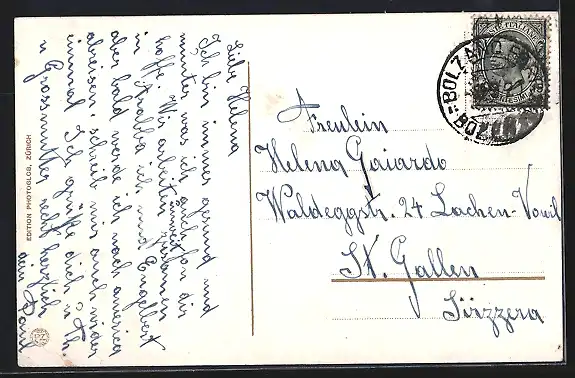 Liebe Helena
Ich bin immer gesund und
munter was ich auch von dir
hoffe. Wir arbeiten zusammen
in Arabba ich und Engelbert
aber bald werde ich nach america
abreisen, schreib mir auch wider
einmal Ich grüße dich u
u Grossmutter recht herzlich
dein Paul
EDITION PHOTOGLOB, ZÜRICH
BOLZANO
Fräulein
Helena Gaiardo
Waldeggstr. 24 Lachen-Vonwil
St. Gallen
Sizzera